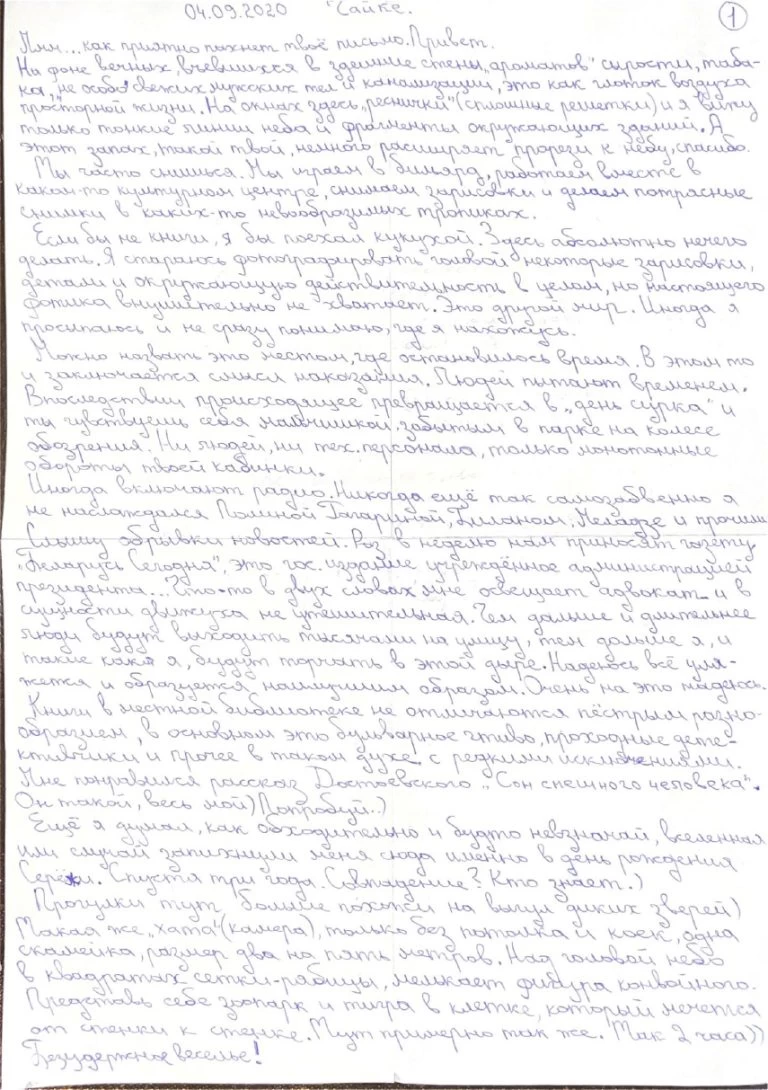 04.09.2020 Чайке. 1
Ммм... как приятно пахнет твоё письмо. Привет.
На фоне вечных, въевшихся в здешние стены „ароматов" сырости, таба-
ка, не особо свежих мужских тел и канализации, это как глоток воздуха
просторной жизни. На окнах здесь „реснички" (сплошные решетки) и я вижу
только тонкие линии неба и фрагменты окружающих зданий. А
этот запах, такой твой, немного расширяет прорези к небу, спасибо.
Ты часто снишься. Мы играем в бильярд, работаем вместе в
каком-то культурном центре, снимаем зарисовки и делаем потрясные
снимки в каких-то невообразимых тропиках.
Если бы не книги, я бы поехал кукухой. Здесь абсолютно нечего
делать. Я стараюсь фотографировать головой некоторые зарисовки,
детали и окружающую действительность в целом, но настоящего
фотика внушительно не хватает. Это другой мир. Иногда я
просыпаюсь и не сразу понимаю, где я нахожусь.
Можно назвать это местом, где остановилось время. В этом то
и заключается смысл наказания. Людей пытают временем.
Впоследствии происходящее превращается в „день сурка" и
ты чувствуешь себя мальчишкой забытым в парке на колесе
обозрения. Ни людей, ни тех. персонала, только монотонные
обороты твоей кабинки.
Иногда включают радио. Никогда ещё так самозабвенно я
не наслаждался Полиной Гагариной, Биланом, Меладзе и прочими
Слышу обрывки новостей. Раз в неделю нам приносят газету
„Беларусь Сегодня", это гос. издание учреждённое администрацией
президента... Что-то в двух словах мне освещает адвокат и в
сущности движуха не утешительная. Чем дальше и длительнее
люди будут выходить тысячами на улицу, тем дольше я, и
такие как я, будут торчать в этой дыре. Надеюсь всё уля-
жется и образуется наилучшим образом. Очень на это надеюсь.
Книги в местной библиотеке не отличаются пёстрым разно-
образием, в основном это бульварное чтиво, проходные дете-
ктивчики и прочее в таком духе с редкими исключениями.
Мне понравился рассказ Достоевского „Сон смешного человека".
Он такой, весь мой) Попробуй..)
Ещё я думал, как обходительно и будто невзначай, вселенная
или случай запихнули меня сюда именно в день рождения
Серёжи. Спустя три года. Совпадение? Кто знает.)
Прогулки тут больше похожи на выгул диких зверей)
Такая же „хата" (камера), только без потолка и коек, одна
скамейка, размер два на пять метров. Над головой небо
в квадратах сетки-рабицы, мелькает фигура конвойного.
Представь себе зоопарк и тигра в клетке, который мечется
от стенки к стенке. Тут примерно так же. Так 2 часа))
Безудержное веселье!